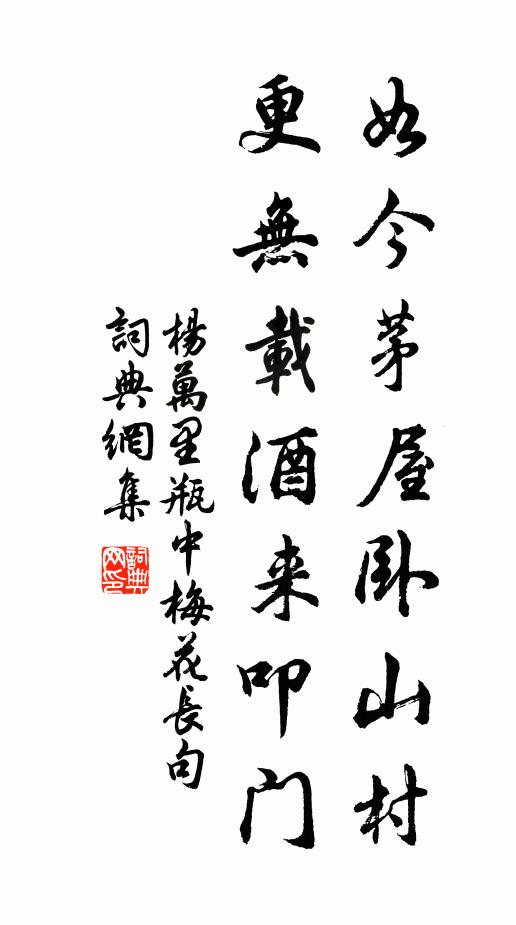 如今茅屋卧山村
更無載酒来叩门
楊萬里瓶中梅花長句
詞典網集
詞典网印